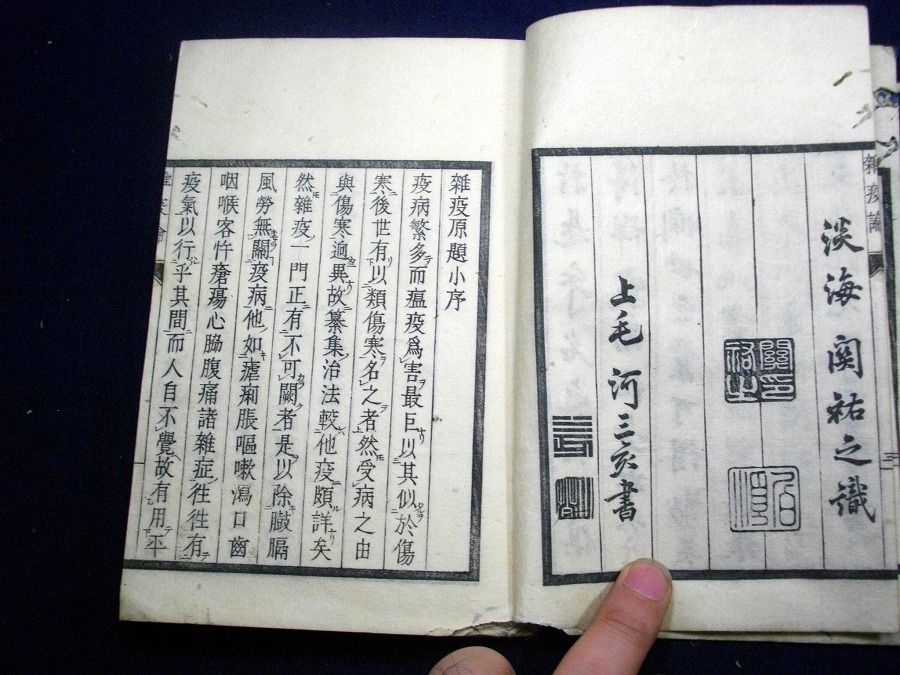 雜疫論
淡海 関祐之識
上毛 河三亥書
雜疫原題小序
疫病繁多而瘟疫爲害最巨以其似於傷
寒後世有以類傷寒名之者然受病之由
與傷寒逈異故纂集治法較他疫頗詳矣
然雜疫一門正有不可闕者是以除臌膈
風勞無關疫病他如瘧痢脹嘔嗽瀉口齒
咽喉客忤瘡瘍心脇腹痛諸雜症往往有
疫氣以行乎其間而人自不覺故有用平